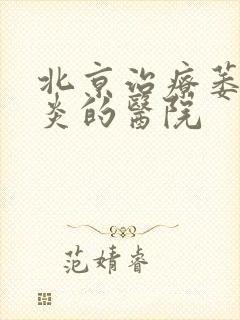 北京治療萎
炎的醫院
范婧睿